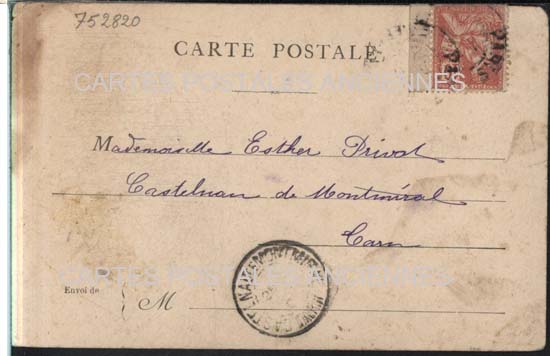 752820
CARTE POSTALE
CARTES POSTALES ANCIENNES
Mademoiselle Esther Privat
Castelnau de Montmiral
Tarn
CARTES POSTALES ANCIENNES
Envoi de
M